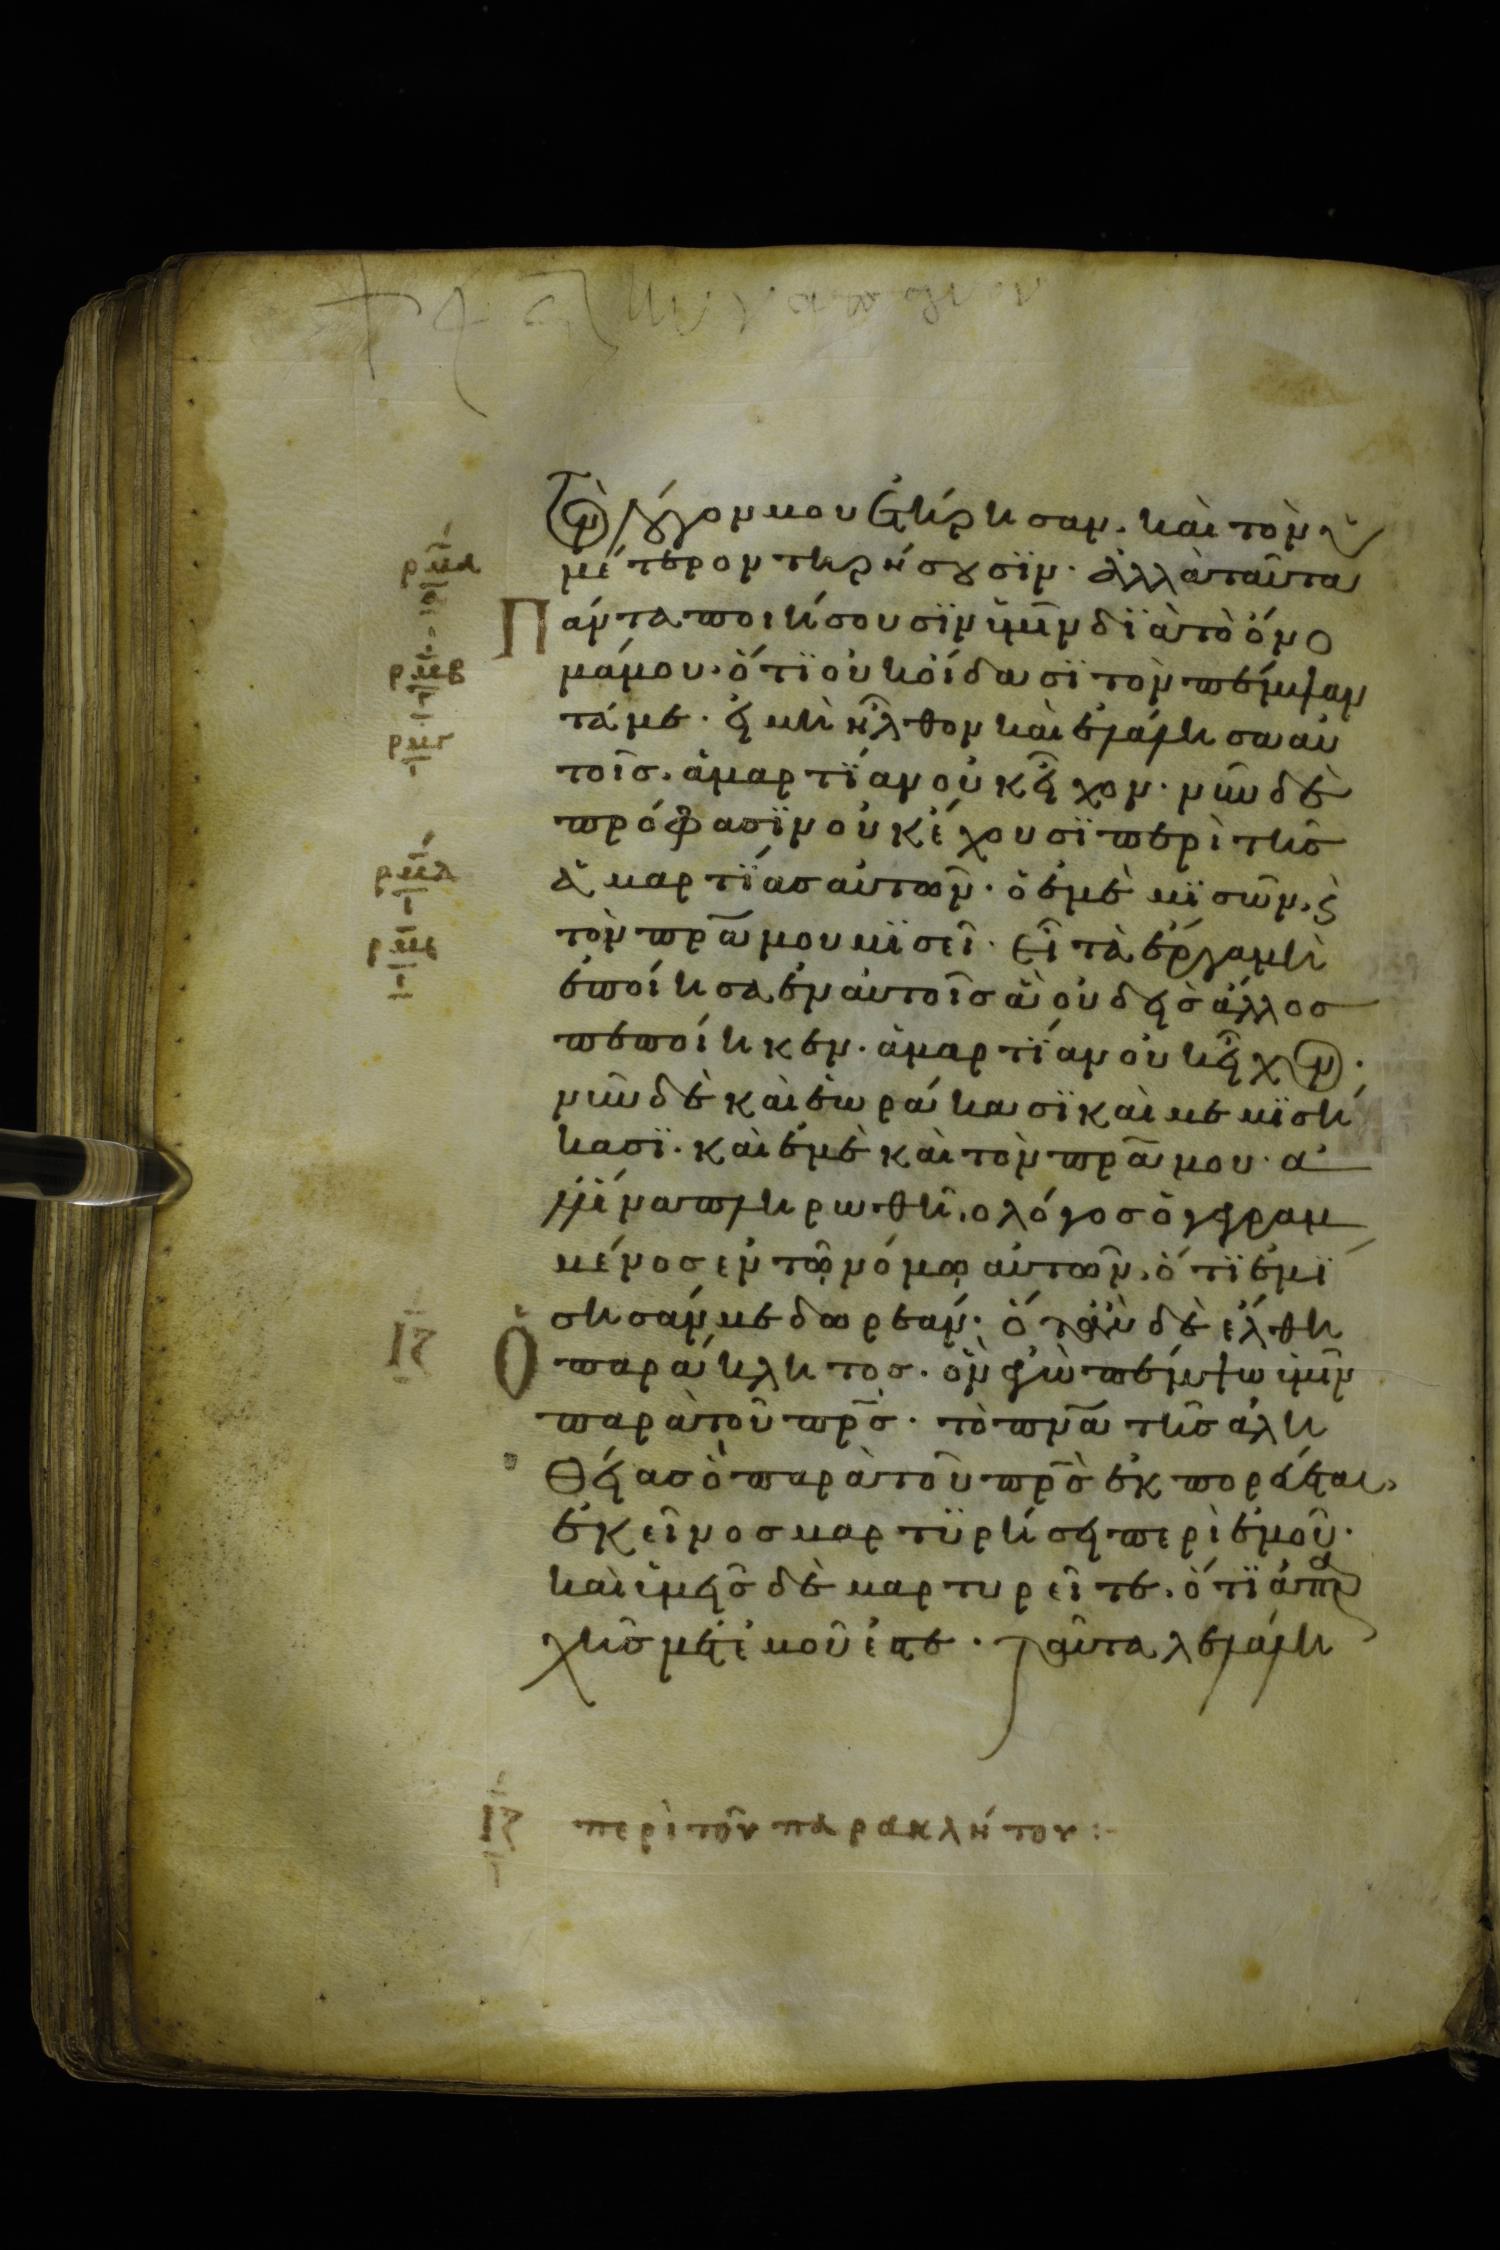 τὸν λόγον μου ἐτήρησαν. καὶ τὸν ὑ
μέτερον τηρήσουσϊν· ἀλλὰ ταῦτα
Πάντα ποιήσουσϊν ὑμῖν δϊὰ τὸ ὄνο
μά μου· ὅτϊ οὐκ οἴδασϊ τὸν πέμψαν
τά με· εἰ μὴ ἦλθον καὶ ἐλάλησα αὐ
τοῖσ. ἁμαρτΐαν οὐκ εἶχον· νῦν δὲ
πρόφασϊν οὐκ ἔχουσϊ περὶ τῆσ
ἁμαρτΐασ αὐτῶν· ὁ ἐμὲ μϊσῶν, καὶ
τὸν πρ̅α μου μϊσεῖ· εἰ τὰ ἔργα μὴ
ἐποίησα ἐν αὐτοῖσ ἃ οὐδεὶσ ἄλλοσ
πεποίηκεν· ἁμαρτΐαν οὐκ εἶχον·
νῦν δὲ καὶ ἑωράκασϊ καὶ μεμϊσή
κασϊ· καὶ ἐμὲ καὶ τὸν πρ̅α μου· ἀ
λλ' ἵνα πληρωθῆ, ο λόγοσ ὁ γεγραμ
μένοσ εν τῷ νόμῳ αὐτῶν, ὅτϊ ἐμΐ
σησάν με δωρεάν· ὅταν δὲ ἔλθη
Ὁ παράκλητοσ· ὃν ἐγὼ πέμψω ὑμῖν
παρὰ τοῦ πρ̅σ· τὸ πν̅α τῆσ ἀλη
θείασ ὃ παρὰ τοῦ πρ̅σ ἐκπορεύεται,
ἐκεῖνοσ μαρτϋρήσει περὶ ἐμοῦ·
καὶ ὑμεῖσ δὲ μαρτυρεῖτε, ὅτϊ ἀπαρ
χῆσ μετ' ἐμοῦ ἐστε· ταῦτα λελάλη
ρμα
ρμβ
ρμγ
ρμδ
ρμε
ΙΖ
ΙΖ περὶ τοῦ παρακλήτου: